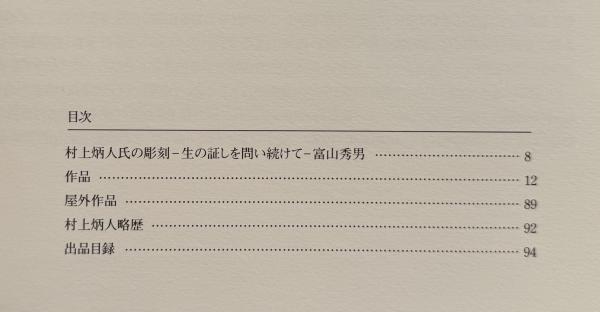 目次
村上炳人氏の彫刻－生の証しを問い続けて－富山秀男 ………………………… 8
作品 ………………………………………………………………………… 12
屋外作品 …………………………………………………………………… 89
村上炳人略歴 ……………………………………………………………… 92
出品目録 …………………………………………………………………… 94